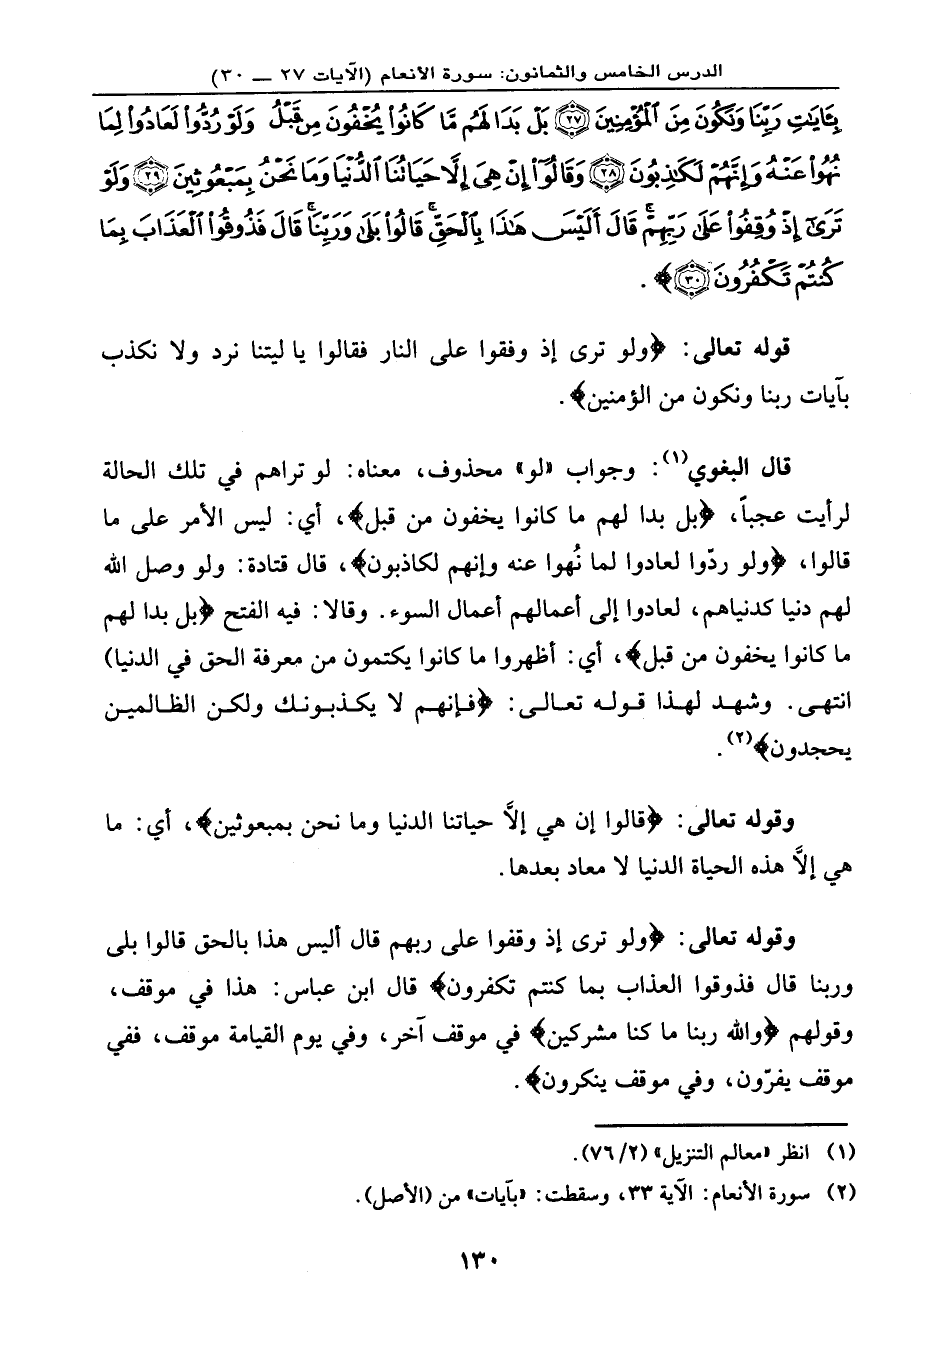 الدرس الخامس والثمانون: سورة الأنعام (الآيات ٢٧ ــ ٣٠)
بِـَٔايَـٰتِ رَبِّنَا وَنَكُونَ مِنَ ٱلْمُؤْمِنِينَ ﴿٢٧﴾ بَلْ بَدَا لَهُم مَّا كَانُوا۟ يُخْفُونَ مِن قَبْلُ وَلَوْ رُدُّوا۟ لَعَادُوا۟ لِمَا
نُهُوا۟ عَنْهُ وَإِنَّهُمْ لَكَـٰذِبُونَ ﴿٢٨﴾ وَقَالُوٓا۟ إِنْ هِىَ إِلَّا حَيَاتُنَا ٱلدُّنْيَا وَمَا نَحْنُ بِمَبْعُوثِينَ ﴿٢٩﴾ وَلَوْ
تَرَىٰٓ إِذْ وُقِفُوا۟ عَلَىٰ رَبِّهِمْ ۚ قَالَ أَلَيْسَ هَـٰذَا بِٱلْحَقِّ ۚ قَالُوا۟ بَلَىٰ وَرَبِّنَا ۚ قَالَ فَذُوقُوا۟ ٱلْعَذَابَ بِمَا
كُنتُمْ تَكْفُرُونَ ﴿٣٠﴾﴾ .
قوله تعالى: ﴿ولو ترى إذ وقفوا على النار فقالوا يا ليتنا نرد ولا نكذب
بآيات ربنا ونكون من الؤمنين﴾.
قال البغوي(١): وجواب «لو» محذوف، معناه: لو تراهم في تلك الحالة
لرأيت عجباً، ﴿بل بدا لهم ما كانوا يخفون من قبل﴾، أي: ليس الأمر على ما
قالوا، ﴿ولو ردّوا لعادوا لما نُهوا عنه وإنهم لكاذبون﴾، قال قتادة: ولو وصل الله
لهم دنيا كدنياهم، لعادوا إلى أعمالهم أعمال السوء. وقالا: فيه الفتح ﴿بل بدا لهم
ما كانوا يخفون من قبل﴾، أي: أظهروا ما كانوا يكتمون من معرفة الحق في الدنيا)
انتهى. وشهد لهذا قوله تعالى: ﴿فإنهم لا يكذبونك ولكن الظالمين
يحجدون﴾(٢).
وقوله تعالى: ﴿قالوا إن هي إلاَّ حياتنا الدنيا وما نحن بمبعوثين﴾، أي: ما
هي إلاَّ هذه الحياة الدنيا لا معاد بعدها.
وقوله تعالى: ﴿ولو ترى إذ وقفوا على ربهم قال أليس هذا بالحق قالوا بلى
وربنا قال فذوقوا العذاب بما كنتم تكفرون﴾ قال ابن عباس: هذا في موقف،
وقولهم ﴿والله ربنا ما كنا مشركين﴾ في موقف آخر، وفي يوم القيامة موقف، ففي
موقف يفرّون، وفي موقف ينكرون﴾.
(١) انظر «معالم التنزيل» (٧٦/٢).
(٢) سورة الأنعام: الآية ٣٣، وسقطت: «بآيات» من (الأصل).
١٣٠